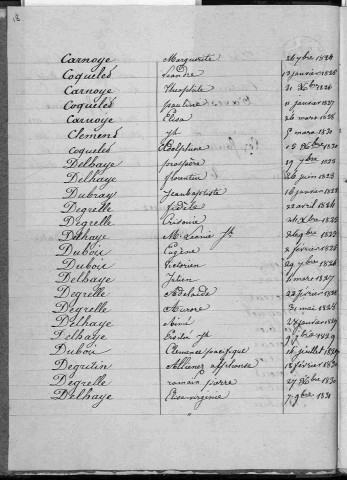 Carnoye Marguerite 26 7bre 1824
Coquelés Léandre 12 janvier 1826
Carnoye Théophile 21 Xbre 1826
Coquelés pauline 11 janvier 1827
Carnoye Elisa 26 mars 1828
Clemens Jh 9 mars 1830
Coquelés Adolphine 15 Xbre 1830
Delhaye prospère 19 7bre 1822
Delhaye florentin 26 juin 1823
Dubray Jean baptiste 16 janvier 1824
Degrelle fidèle 22 avril 1824
Degrelle 1825
Delhaye M. Léonie Jh 2 1825
Dubois Eugène 2 février 1826
Dubois Victorien 29 7bre 1826
Delhaye Julien mars 1827
Degrelle Adelaïde 22 février 1828
Degrelle Aurore 31 mai 1828
Delhaye Aimé 27 janvier 1829
Delhaye Jh 1829
Dubois Clemence pacifique 14 juillet
Degrutin alphonse 18 février 1830
Degrelle romain pierre 27 Xbre 1830
Delhaye Elisa virginie 7 9bre 1831